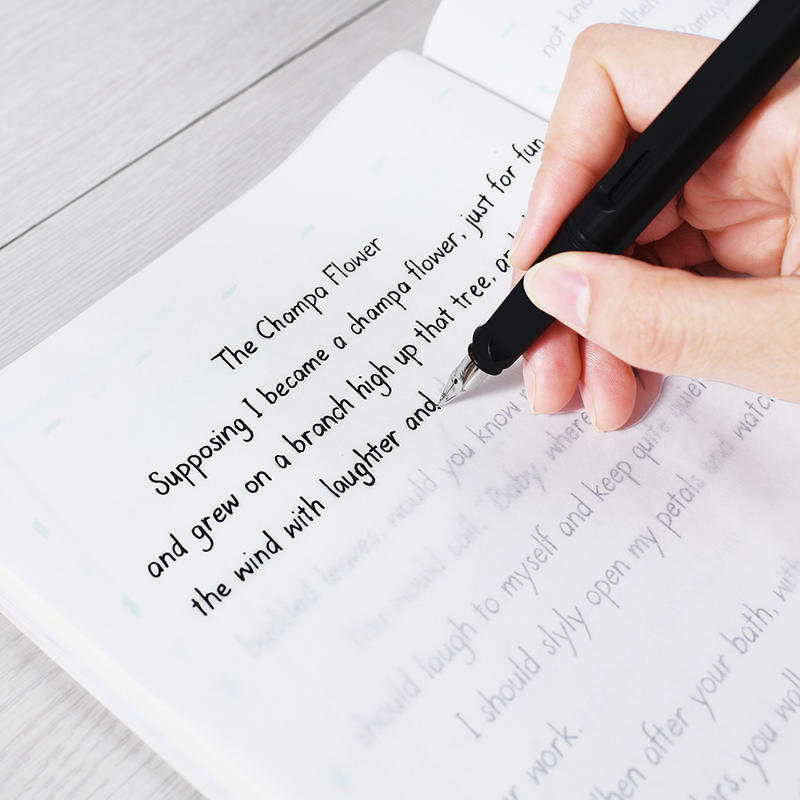 not kno
The Champa Flower
Supposing I became a champa flower, just for fun
and grew on a branch high up that tree, and
the wind with laughter and
would you know
budded leaves,
"Baby, where
you would call,
should laugh to myself and keep quite quiet
I should slyly open my petals and watch
r work.
hen after your bath, with
rs, you walk